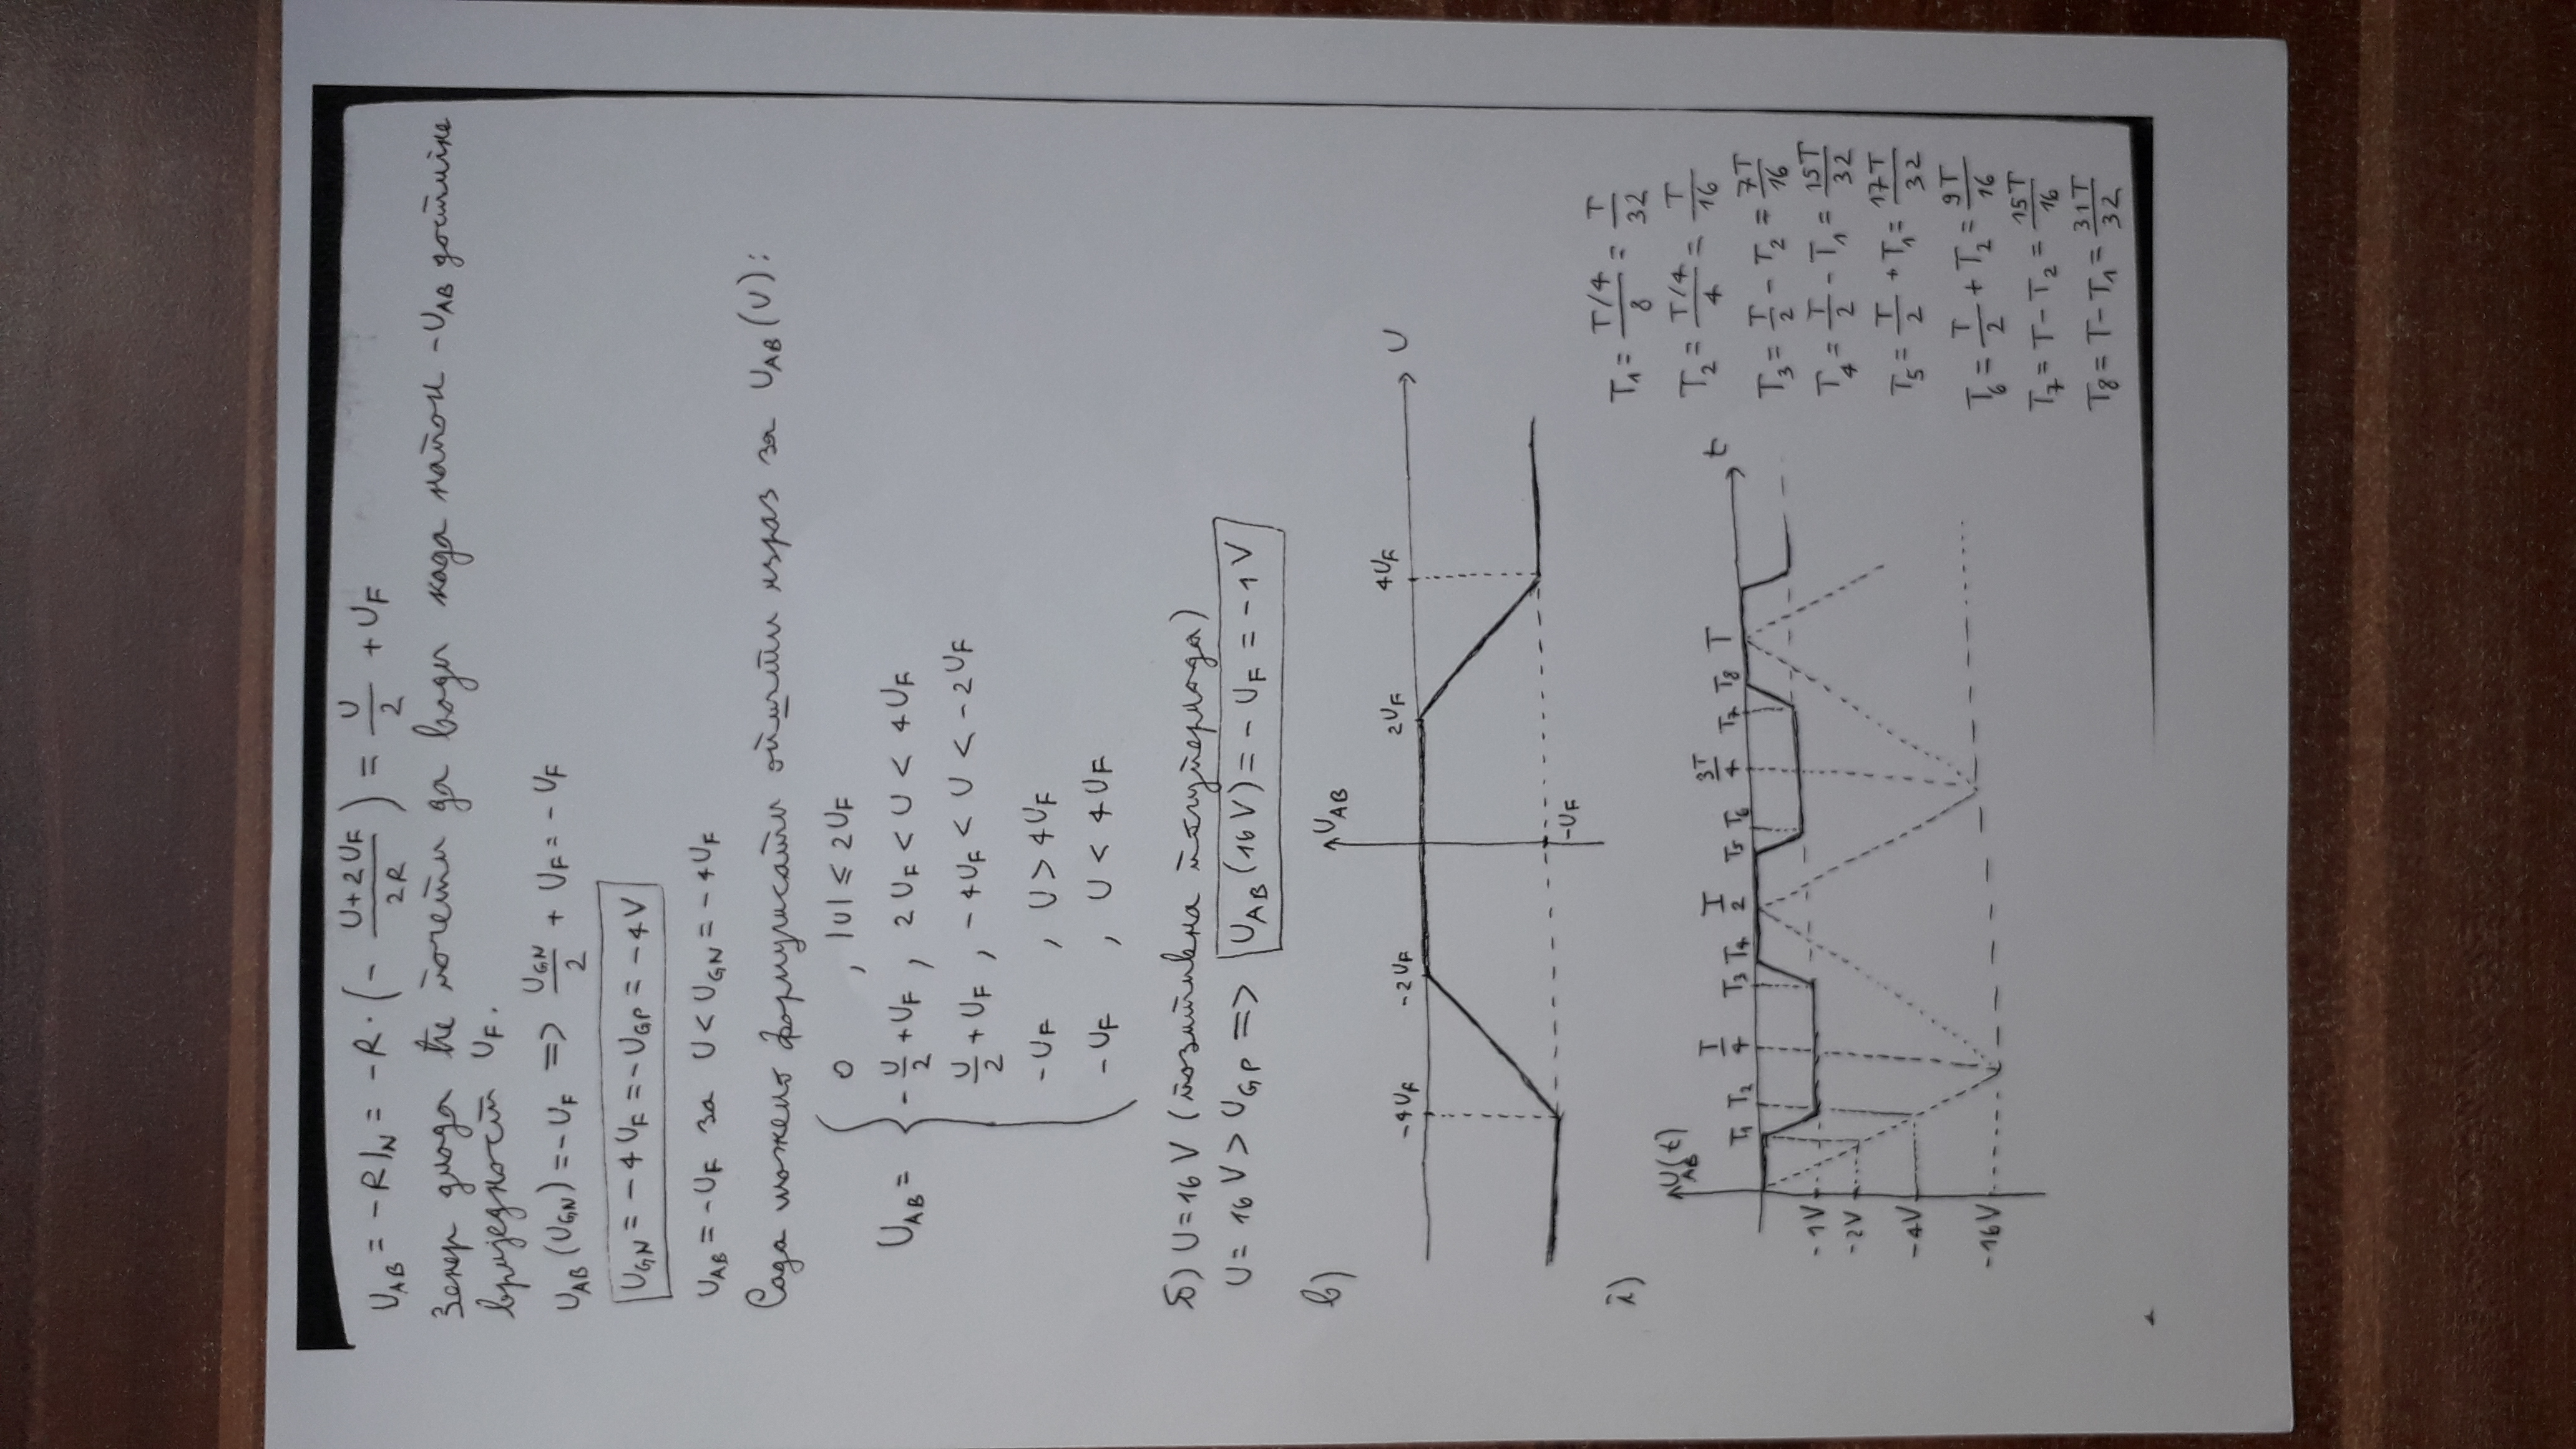 U_AB = -R I_N = -R · (- (U+2U_F)/(2R)) = U/2 + U_F
Зенер диода ће почети да води када напон -U_AB достигне
вриједност U_F.
U_AB (U_GN) = -U_F => U_GN/2 + U_F = -U_F
U_GN = -4U_F = -U_GP = -4V
U_AB = -U_F за U < U_GN = -4U_F
Сада можемо формулисати општи израз за U_AB (U):
U_AB = {
0 , |U| ≤ 2U_F
-U/2 + U_F , 2U_F < U < 4U_F
U/2 + U_F , -4U_F < U < -2U_F
-U_F , U > 4U_F
-U_F , U < 4U_F
б) U = 16 V (позитивна полупериода)
U = 16 V > U_GP => U_AB (16V) = -U_F = -1V
в)
U_AB
-4U_F -2U_F 2U_F 4U_F U
-U_F
г)
U_AB(t)
T1 T2 T/4 T3 T4 T/2 T5 T6 3T/4 T7 T8 T t
-1V
-2V
-4V
-16V
T1 = (T/4)/8 = T/32
T2 = (T/4)/4 = T/16
T3 = T/2 - T2 = 7T/16
T4 = T/2 - T1 = 15T/32
T5 = T/2 + T1 = 17T/32
T6 = T/2 + T2 = 9T/16
T7 = T - T2 = 15T/16
T8 = T - T1 = 31T/32